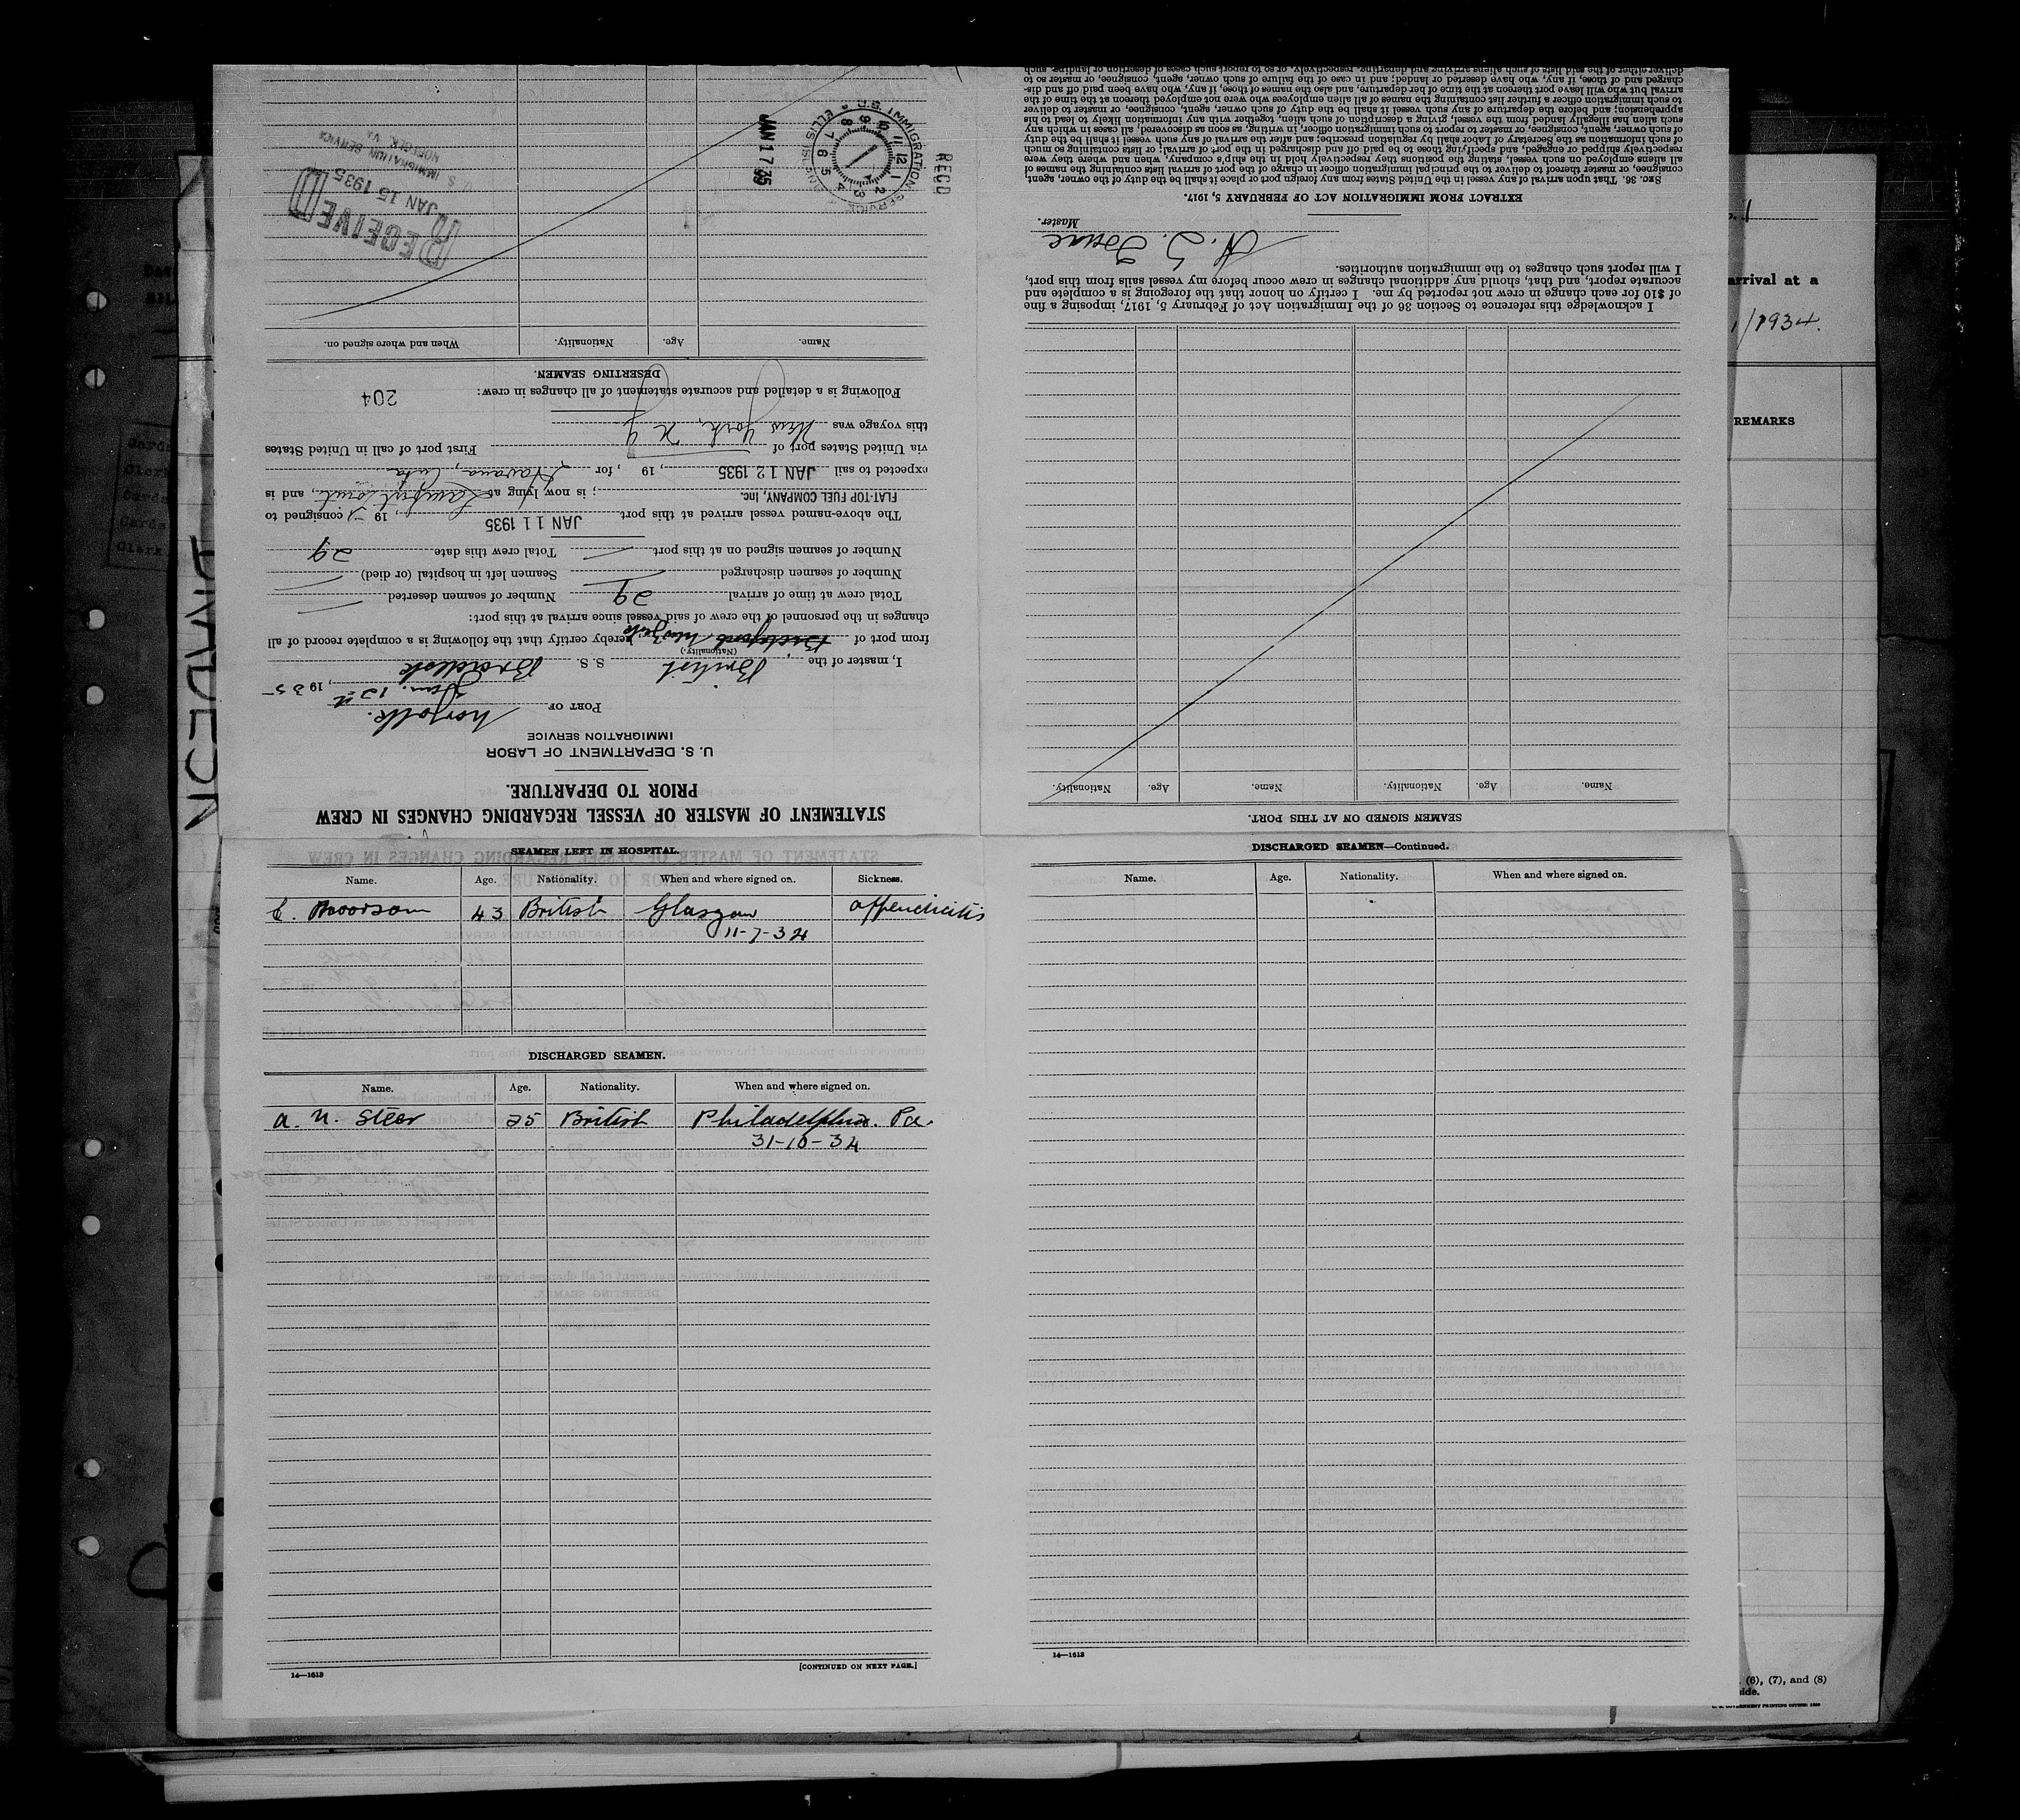 STATEMENT OF MASTER OF VESSEL REGARDING CHANGES IN CREW
PRIOR TO DEPARTURE.
U. S. DEPARTMENT OF LABOR
IMMIGRATION SERVICE
PORT OF Norfolk.
Jan. 12th, 1935
I, master of the British S. S.
(Nationality.)
from port of New York hereby certify that the following is a complete record of all
changes in the personnel of the crew of said vessel since arrival at this port:
Total crew at time of arrival 29 Number of seamen deserted
Number of seamen discharged Seamen left in hospital (or died)
Number of seamen signed on at this port Total crew this date 29
The above-named vessel arrived at this port JAN 11 1935, 19 consigned to
FLAT-TOP FUEL COMPANY, Inc. ; is now lying at Lamberts Point, and is
expected to sail JAN 12 1935, 19 , for Havana, Cuba
via United States port of First port of call in United States
this voyage was New York, N Y
Following is a detailed and accurate statement of all changes in crew:
204
DESERTING SEAMEN.
Name. Age. Nationality. When and where signed on.
RECEIVED
JAN 15 1935
U. S. IMMIGRATION SERVICE
NORFOLK, VA.
RECD
U.S. IMMIGRATION SERVICE
ELLIS ISLAND
12 1 2 3 4 5 6 7 8 9 10 11
JAN 17 35
SEAMEN SIGNED ON AT THIS PORT.
Name. Age. Nationality. Name. Age. Nationality.
I acknowledge this reference to Section 36 of the Immigration Act of February 5, 1917, imposing a fine
of $10 for each change in crew not reported by me. I certify on honor that the foregoing is a complete and
accurate report, and that, should any additional changes in crew occur before my vessel sails from this port,
I will report such changes to the immigration authorities.
Master.
EXTRACT FROM IMMIGRATION ACT OF FEBRUARY 5, 1917.
SEC. 36. That upon arrival of any vessel in the United States from any foreign port or place it shall be the duty of the owner, agent,
consignee, or master thereof to deliver to the principal immigration officer in charge of the port of arrival lists containing the names of
all aliens employed on such vessel, stating the positions they respectively hold in the ship's company, when and where they were
respectively shipped or engaged, and specifying those to be paid off and discharged in the port of arrival; or lists containing so much
of such information as the Secretary of Labor shall by regulation prescribe; and after the arrival of any such vessel it shall be the duty
of such owner, agent, consignee, or master to report to such immigration officer, in writing, as soon as discovered, all cases in which any
such alien has illegally landed from the vessel, giving a description of such alien, together with any information likely to lead to his
apprehension; and before the departure of any such vessel it shall be the duty of such owner, agent, consignee, or master to deliver
to such immigration officer a further list containing the names of all alien employees who were not employed thereon at the time of the
arrival but who will leave port thereon at the time of her departure, and also the names of those, if any, who have been paid off and dis-
charged and of those, if any, who have deserted or landed; and in case of the failure of such owner, agent, consignee, or master so to
deliver either of the said lists of such aliens arriving and departing, respectively, or so to report such cases of desertion or landing, such
SEAMEN LEFT IN HOSPITAL.
Name. Age. Nationality. When and where signed on. Sickness.
43 British Glasgow appendicitis
11-7-34
DISCHARGED SEAMEN.
Name. Age. Nationality. When and where signed on.
A. N. Steer 25 British Philadelphia. Pa.
31-10-34
14—1613
[CONTINUED ON NEXT PAGE.]
DISCHARGED SEAMEN—Continued.
Name. Age. Nationality. When and where signed on.
14—1613
arrival at a
/1934.
REMARKS
(6), (7), and (8)
side.